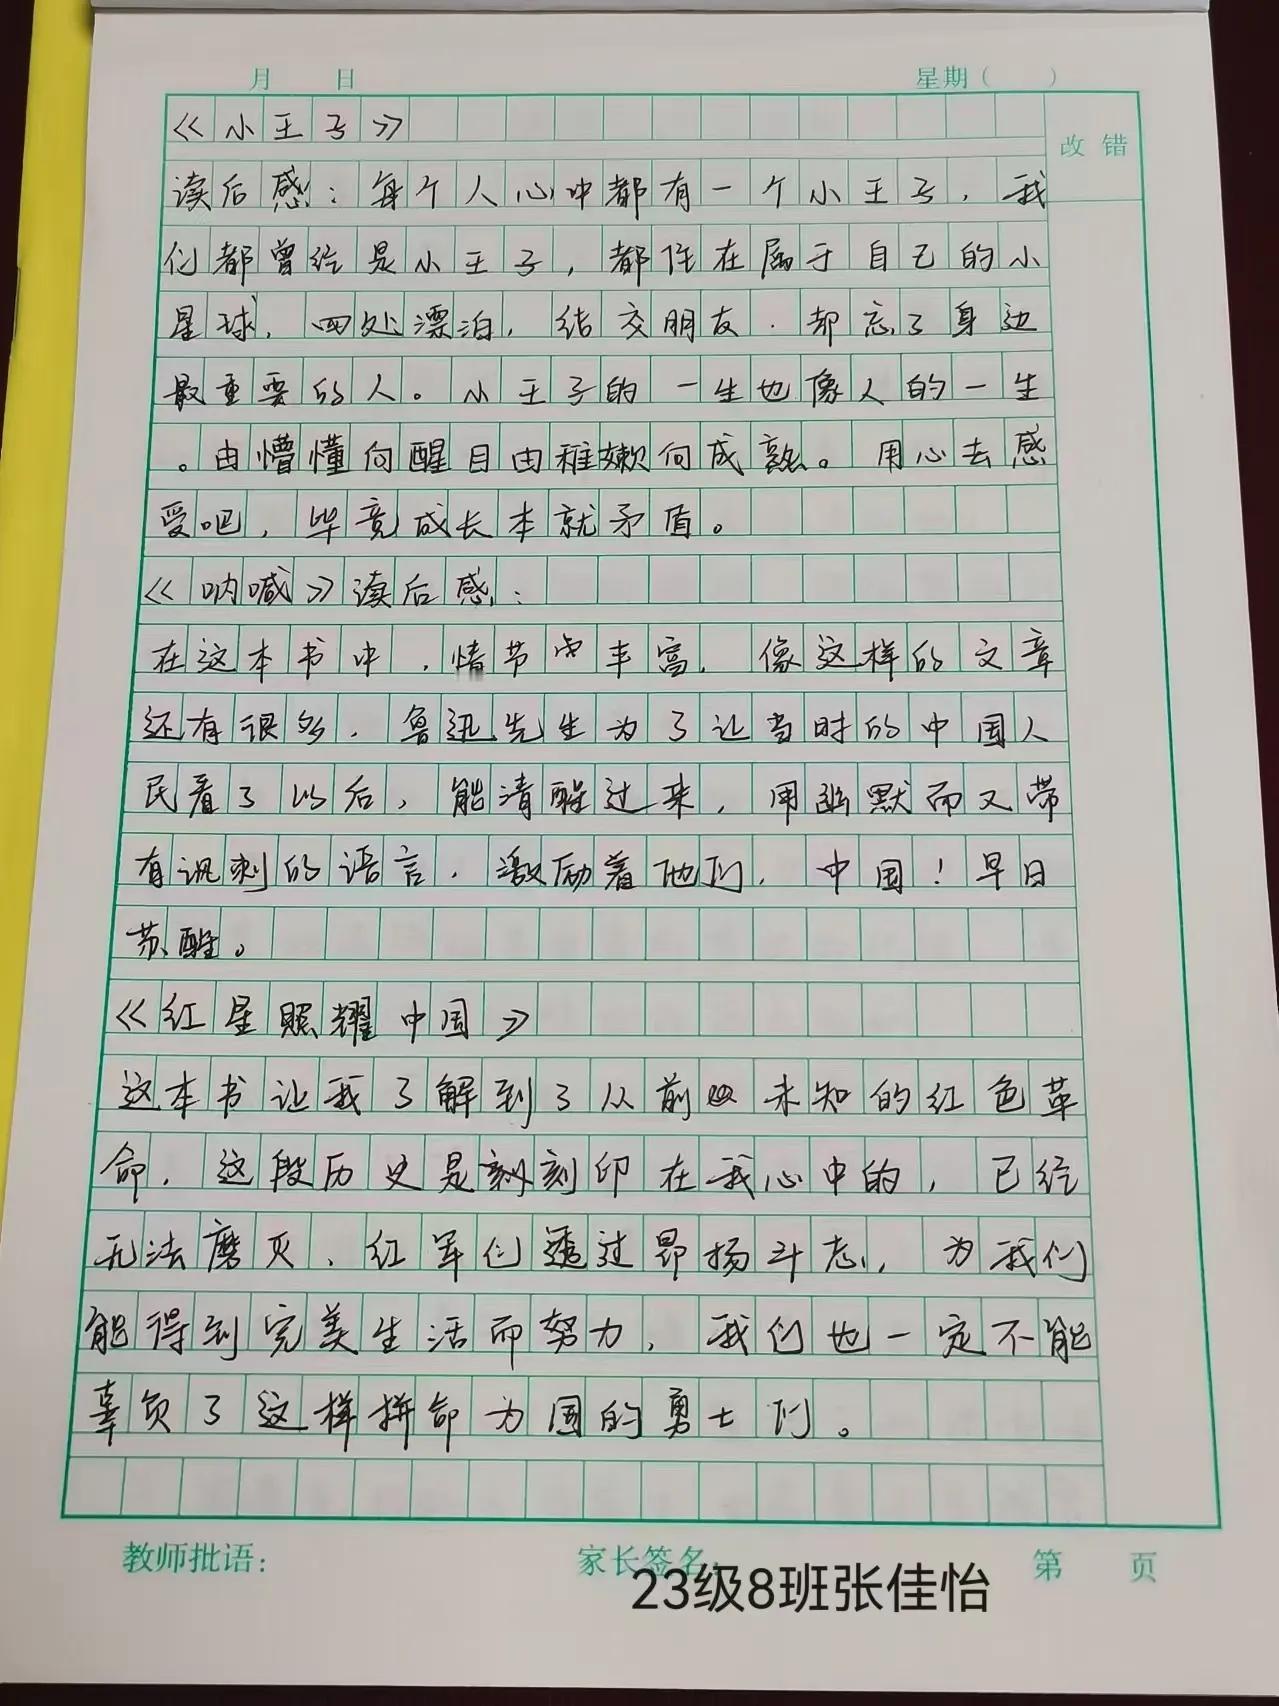 月 日 星期（ ）
改错
《小王子》
读后感：每个人心中都有一个小王子，我
们都曾经是小王子，都住在属于自己的小
星球，四处漂泊，结交朋友．却忘了身边
最重要的人。小王子的一生也像人的一生
。由懵懂向醒目由稚嫩向成熟。用心去感
受吧，毕竟成长本就矛盾。
《呐喊》读后感：
在这本书中，情节丰富，像这样的文章
还有很多，鲁迅先生为了让当时的中国人
民看了以后，能清醒过来，用幽默而又带
有讽刺的语言，激励着他们，中国！早日
苏醒。
《红星照耀中国》
这本书让我了解到了从前未知的红色革
命，这段历史是刻印在我心中的，已经
无法磨灭、红军们透过昂扬斗志，为我们
能得到完美生活而努力，我们也一定不能
辜负了这样拼命为国的勇士们。
教师批语： 家长签名： 第 页
23级8班张佳怡